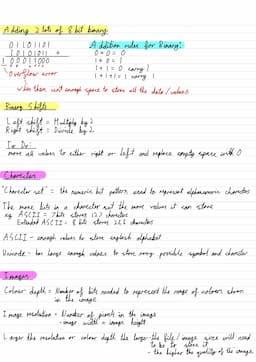 Adding 2 lots of 8 bit binary:
01101101
10101011 +
1 00011000
Overflow error
when there isn't enough space to store all the data / values
Addition rules for Binary:
0 + 0 = 0
1 + 0 = 1
1 + 1 = 0 carry 1
1 + 1 + 1 = 1 carry 1
Binary Shifts
Left shift = Multiply by 2
Right shift = Divide by 2
To Do:
move all values to either right or left and replace empty space with 0
Characters
"Character set" = the numeric bit pattern used to represent alphanumeric characters
The more bits in a character set the more values it can store
eg ASCII = 7 bits stores 127 characters
Extended ASCII = 8 bits stores 255 characters
ASCII - enough values to store english alphabet
Unicode - has large enough values to store every possible symbol and character
Images
Colour depth = Number of bits needed to represent the range of colours shown
in the image
Image resolution = Number of pixels in the image
- image width × image height
Larger the resolution or colour depth the larger the file / image size will need
to be to store it
- the higher the quality of the image